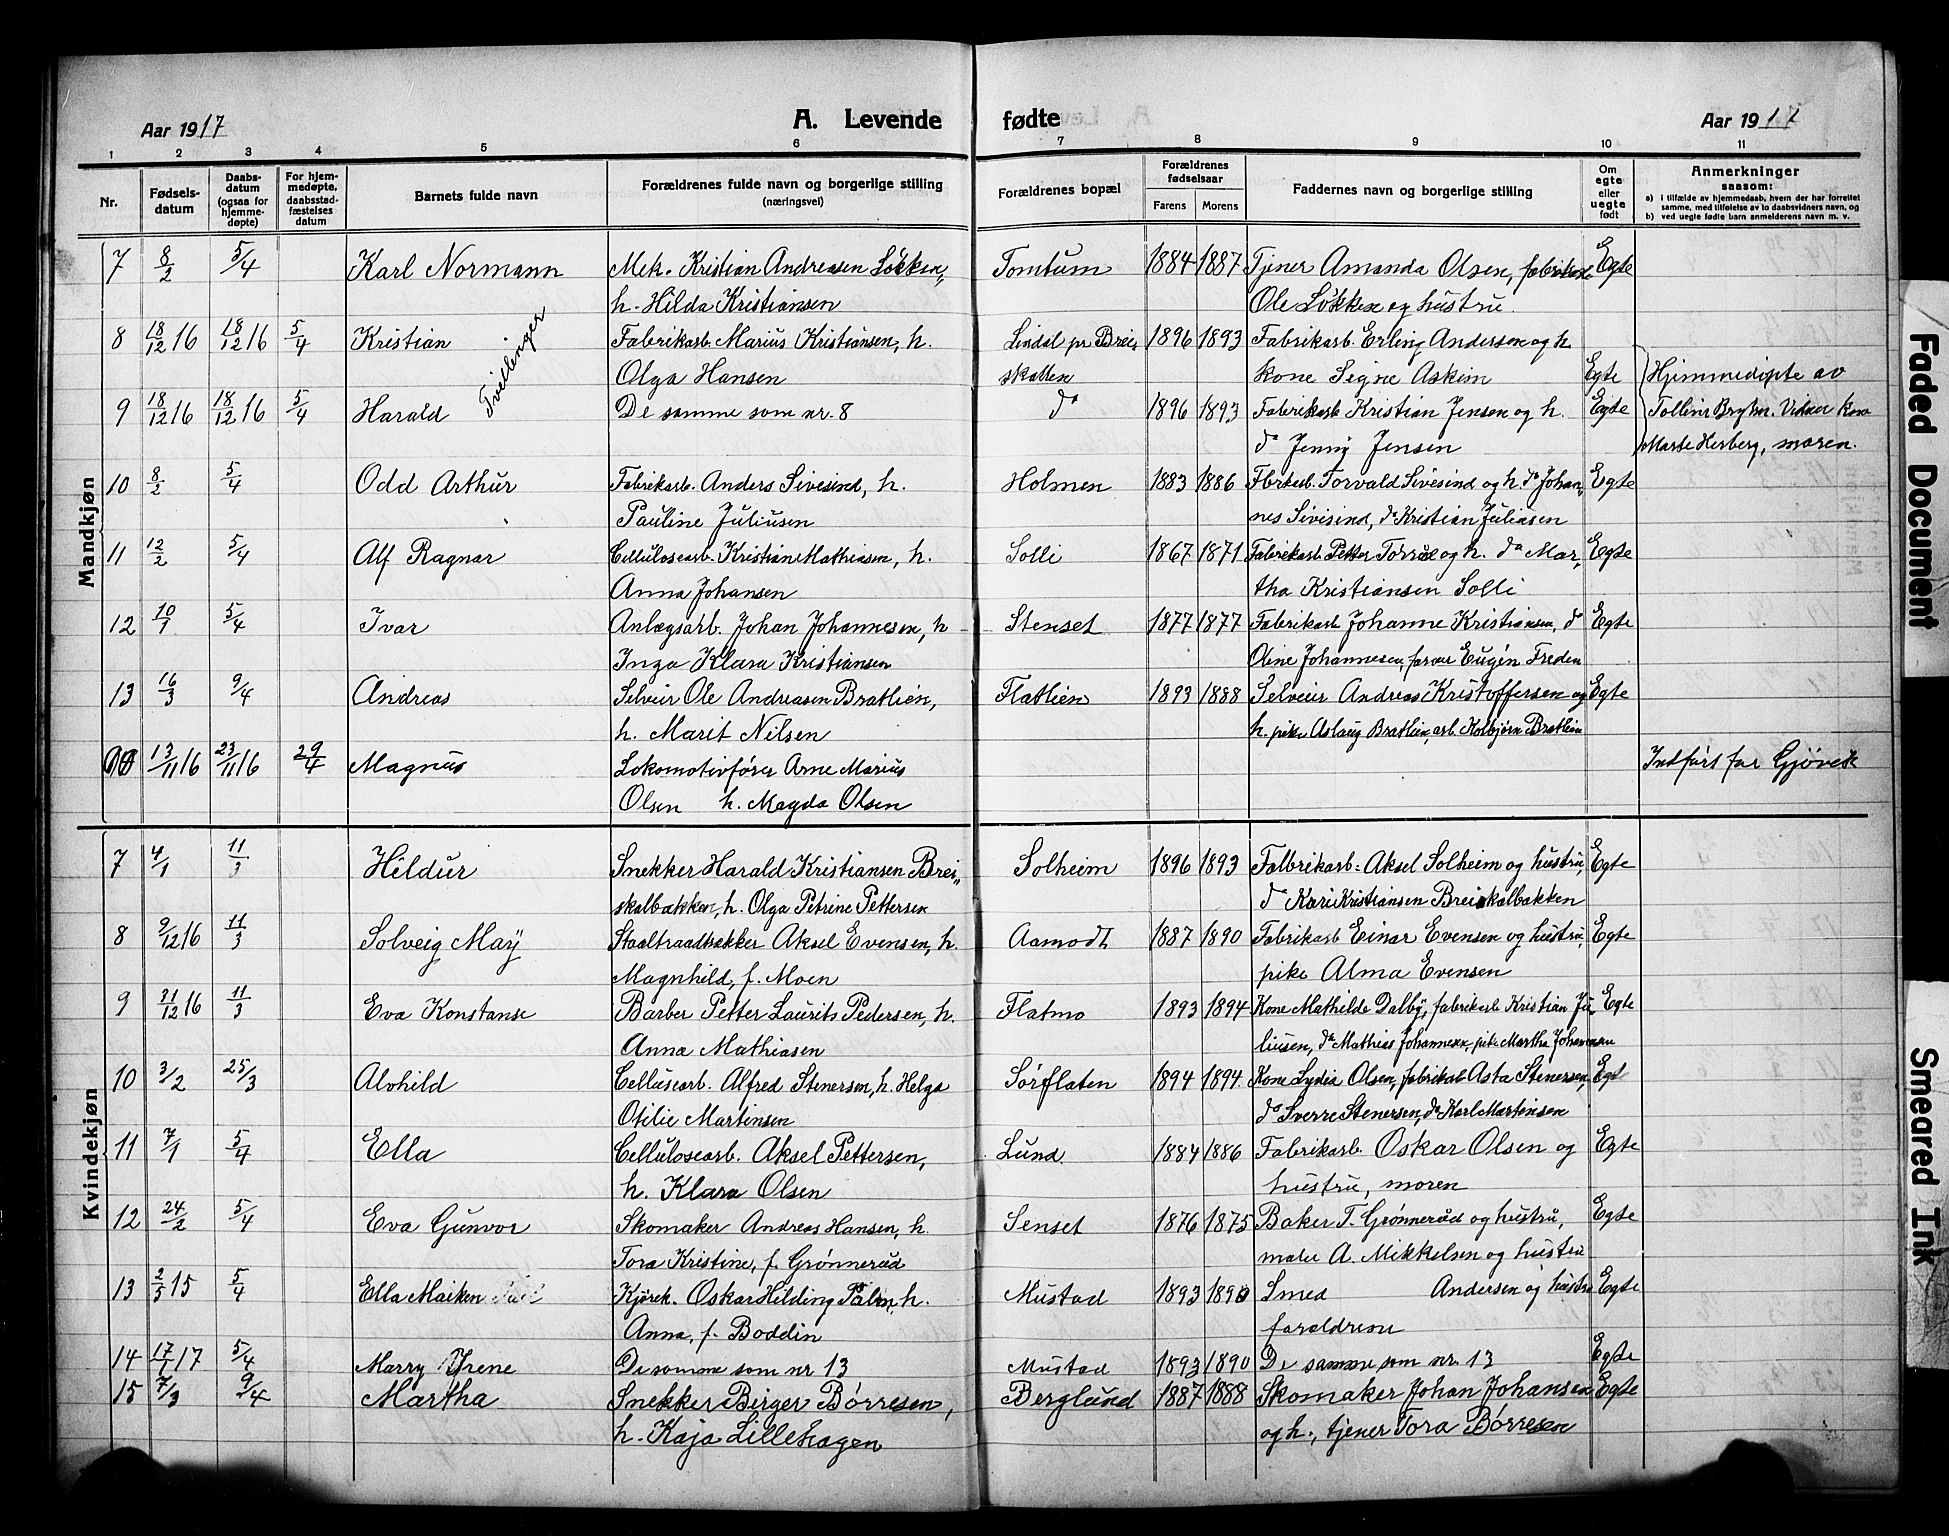 Aar 1917
A. Levende
fødte
Aar 1917
1 2 3 4 5 6 7 8 9 10 11
Nr.
Fødsels-
datum
Daabs-
datum
(ogsaa for
hjemme-
døpte)
For hjem-
medøpte,
daabsstad-
fæstelses
datum
Barnets fulde navn
Forældrenes fulde navn og borgerlige stilling
(næringsvei)
Forældrenes bopæl
Forældrenes
fødselsaar
Farens Morens
Faddernes navn og borgerlige stilling
Om
egte
eller
uegte
født
Anmerkninger
saasom:
a) i tilfælde av hjemmedaab, hvem der har forrettet
samme, med tilføielse av to daabsvidners navn, og
b) ved uegte fødte barn anmelderens navn m. v.
Mandkjøn
7 8/2 5/4 Karl Normann Mek. Kristian Andreasen Løkken, Tomtum 1884 1887 Tjener Amanda Olsen, Egte
h. Hilda Kristiansen Ole Løkken og hustru.
8 18/12 16 18/12 16 5/4 Kristian Tvillinger Fabrikarb. Marius Kristiansen, h. Lindal pr Brei- 1896 1893 Fabrikarb. Erling Andersen og h.
Olga Hansen skallen kone Signe Askim Egte Hjemmedøpte av
9 18/12 16 18/12 16 5/4 Harald De samme som nr. 8 do 1896 1893 Fabrikarb Kristian Jensen og h. Egte Vidner
do Jenny Jensen Marte Herberg, moren.
10 8/2 5/4 Odd Arthur Fabrikarb. Anders Sivesind, h. Holmen 1883 1886 Torvald Sivesind og h. do Johan- Egte
Pauline Juliusen nes Sivisind, do Kristian Juliusen
11 12/2 5/4 Alf Ragnar Cellulosearb. Kristian Mathiasen, h. Solli 1867 1871 Fabrikarb. Petter og h. do Mar- Egte
Anna Johansen tha Kristiansen Solli
12 10/1 5/4 Ivar Anlægsarb. Johan Johannesen, h Stenset 1877 1877 Fabrikarb Johanne Kristiansen, do Egte
Inga Klara Kristiansen Oline Johannesen, Eugén Freden
13 16/3 9/4 Andreas Selveier Ole Andreasen Bratlien, Flatlien 1893 1888 Selveier Andreas Kristoffersen og Egte
h. Marit Nilsen h. pike Aslaug Bratlien, arb. Kolbjørn Bratlien
13/11 16 23/11 16 29/4 Magnus Lokomotivfører Arne Marius Indført for Gjøvik
Olsen h. Magda Olsen
Kvindekjøn
7 4/1 11/3 Hildur Snekker Harald Kristiansen Brei- Solheim 1896 1893 Falbrikarb. Aksel Solheim og hustru, Egte
skalbakken, h. Olga Petrine Pettersen do Kari Kristiansen Breiskalbakken
8 9/12 16 11/3 Solveig Maÿ Staaltraadtrækker Aksel Evensen, h. Aamodt 1887 1890 Fabrikarb Einar Evensen og hustru, Egte
Magnhild, f. Moen pike Alma Evensen
9 31/12 16 11/3 Eva Konstanse Barber Petter Laurits Pedersen, h. Flatmo 1893 1894 Kone Mathilde Dalby, fabrikarb Kristian Ju- Egte
Anna Mathiasen liusen, do Mathias Johannesen, pike Martha Johannesen
10 3/2 25/3 Alvhild Cellusearb. Alfred Stenersen, h. Helga Sørflaten 1894 1894 Kone Lydia Olsen, fabrikarb Asta Stenersen, Egt
Otilie Martinsen do Sverre Stenersen, do Karl Martinsen
11 7/1 5/4 Ella Cellulosearb. Aksel Pettersen, Lund. 1884 1886 Fabrikarb. Oskar Olsen og Egte
h. Klara Olsen hustru, moren
12 24/2 5/4 Eva Gunvor Skomaker Andreas Hansen, h. Senset 1876 1875 Baker T. Grønnerud og hustru, Egte
Tora Kristine, f. Grønnerud maler A. Mikkelsen og hustru
13 2/5 15 5/4 Ella Maiken Kjørek. Oskar Hilding Palm, h. Mustad 1893 1890 Smed Andersen og hustru Egte
Anna, f. Boddin forældrene
14 17/1 17 5/4 Marry Yrene De samme som nr 13 Mustad 1893 1890 De samme som nr. 13 Egte
15 7/3 9/4 Martha Snekker Birger Børresen, Berglund 1887 1888 Skomaker Johan Johansen Egte
h. Kaja Lillehagen og h., tjener Tora Børresen
Faded Document
Smeared Ink